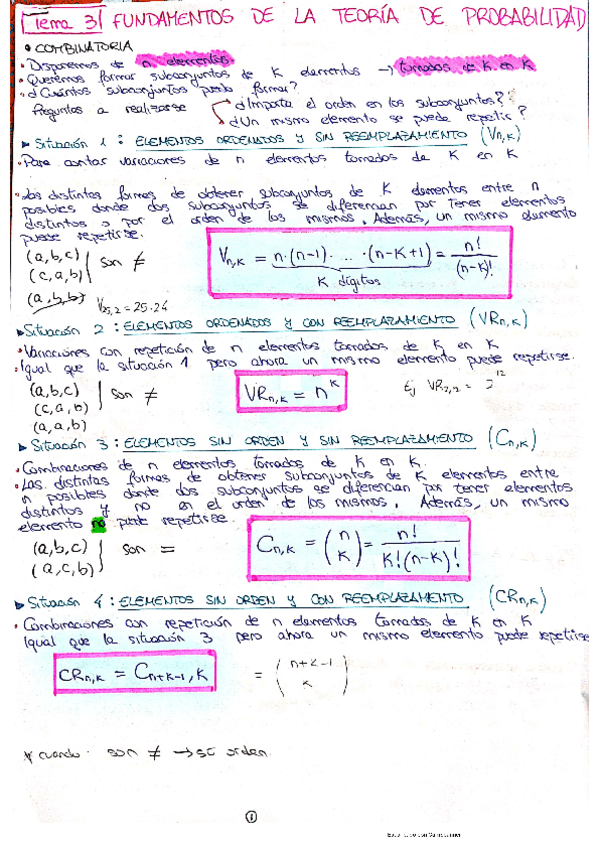 Tema 3 FUNDAMENTOS DE LA TEORÍA DE PROBABILIDAD
• COMBINATORIA
• Disponemos de n elementos.
• Queremos formar subconjuntos de K elementos → tomados de K en K
• ¿Cuántos subconjuntos puedo formar?
Preguntas a realizarse ¿Importa el orden en los subconjuntos?
¿Un mismo elemento se puede repetir?
► Situación 1: ELEMENTOS ORDENADOS Y SIN REEMPLAZAMIENTO (Vn,K)
• Para contar variaciones de n elementos tomados de K en K
• Las distintas formas de obtener subconjuntos de K elementos entre n
posibles donde dos subconjuntos se diferencian por tener elementos
distintos o por el orden de los mismos. Además, un mismo elemento
puede repetirse.
(a,b,c)
(c,a,b) son ≠
(a,b,b)
Vn,K = n·(n-1)· ... ·(n-K+1) = n!/(n-K)!
K dígitos
V25,2 = 25·24
► Situación 2: ELEMENTOS ORDENADOS Y CON REEMPLAZAMIENTO (VRn,K)
• Variaciones con repetición de n elementos tomados de K en K
• Igual que la situación 1 pero ahora un mismo elemento puede repetirse.
(a,b,c)
(c,a,b) son ≠
(a,a,b)
VRn,K = n^K
Ej
► Situación 3: ELEMENTOS SIN ORDEN Y SIN REEMPLAZAMIENTO (Cn,K)
• Combinaciones de n elementos tomados de K en K.
• Las distintas formas de obtener subconjuntos de K elementos entre
n posibles donde dos subconjuntos se diferencian por tener elementos
distintos y no en el orden de los mismos. Además, un mismo
elemento no puede repetirse.
(a,b,c)
(a,c,b) son =
Cn,K = (n K) = n!/K!(n-K)!
► Situación 4: ELEMENTOS SIN ORDEN Y CON REEMPLAZAMIENTO (CRn,K)
• Combinaciones con repetición de n elementos tomados de K en K
Igual que la situación 3 pero ahora un mismo elemento puede repetirse
CRn,K = Cn+K-1,K = (n+K-1 K)
* cuando son ≠ → sí orden.
1